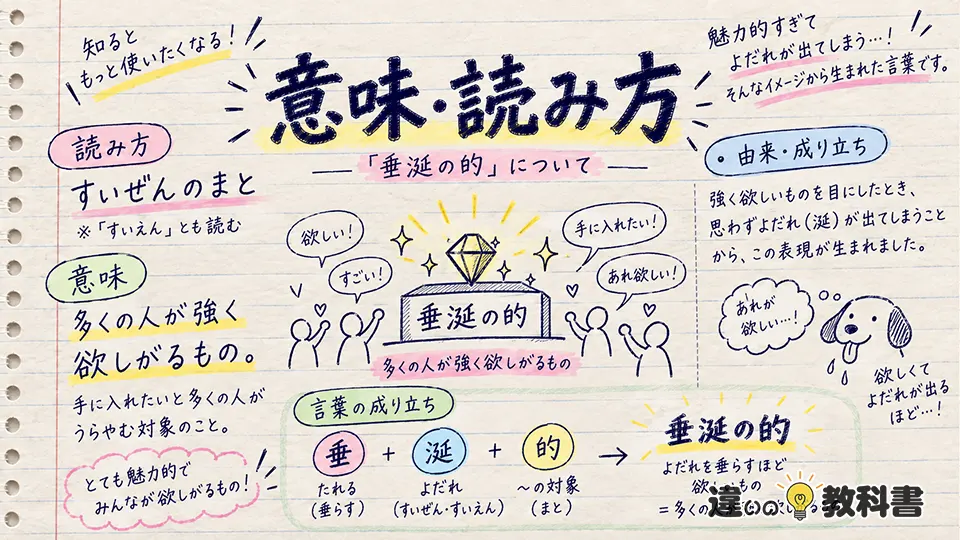 知ると
もっと使いたくなる！
意味・読み方
「垂涎の的」について
魅力的すぎて
よだれが出てしまう…！
そんなイメージから生まれた言葉です。
読み方
すいぜんのまと
※「すいえん」とも読む
意味
多くの人が強く
欲しがるもの。
手に入れたいと多くの人が
うらやむ対象のこと。
とても魅力的で
みんなが欲しがるもの！
欲しい！
すごい！
手に入れたい！
あれ欲しい！
垂涎の的
多くの人が強く欲しがるもの
・由来・成り立ち
強く欲しいものを目にしたとき、
思わずよだれ（涎）が出てしまうこと
から、この表現が生まれました。
あれが
欲しい…！
欲しくて
よだれが出る
ほど…！
言葉の成り立ち
垂 + 涎 + 的 → 垂涎の的
たれる
（垂らす）
よだれ
（すいぜん・すいえん）
〜の対象
（まと）
よだれを垂らすほど
欲しいもの
＝多くの
違いの教科書